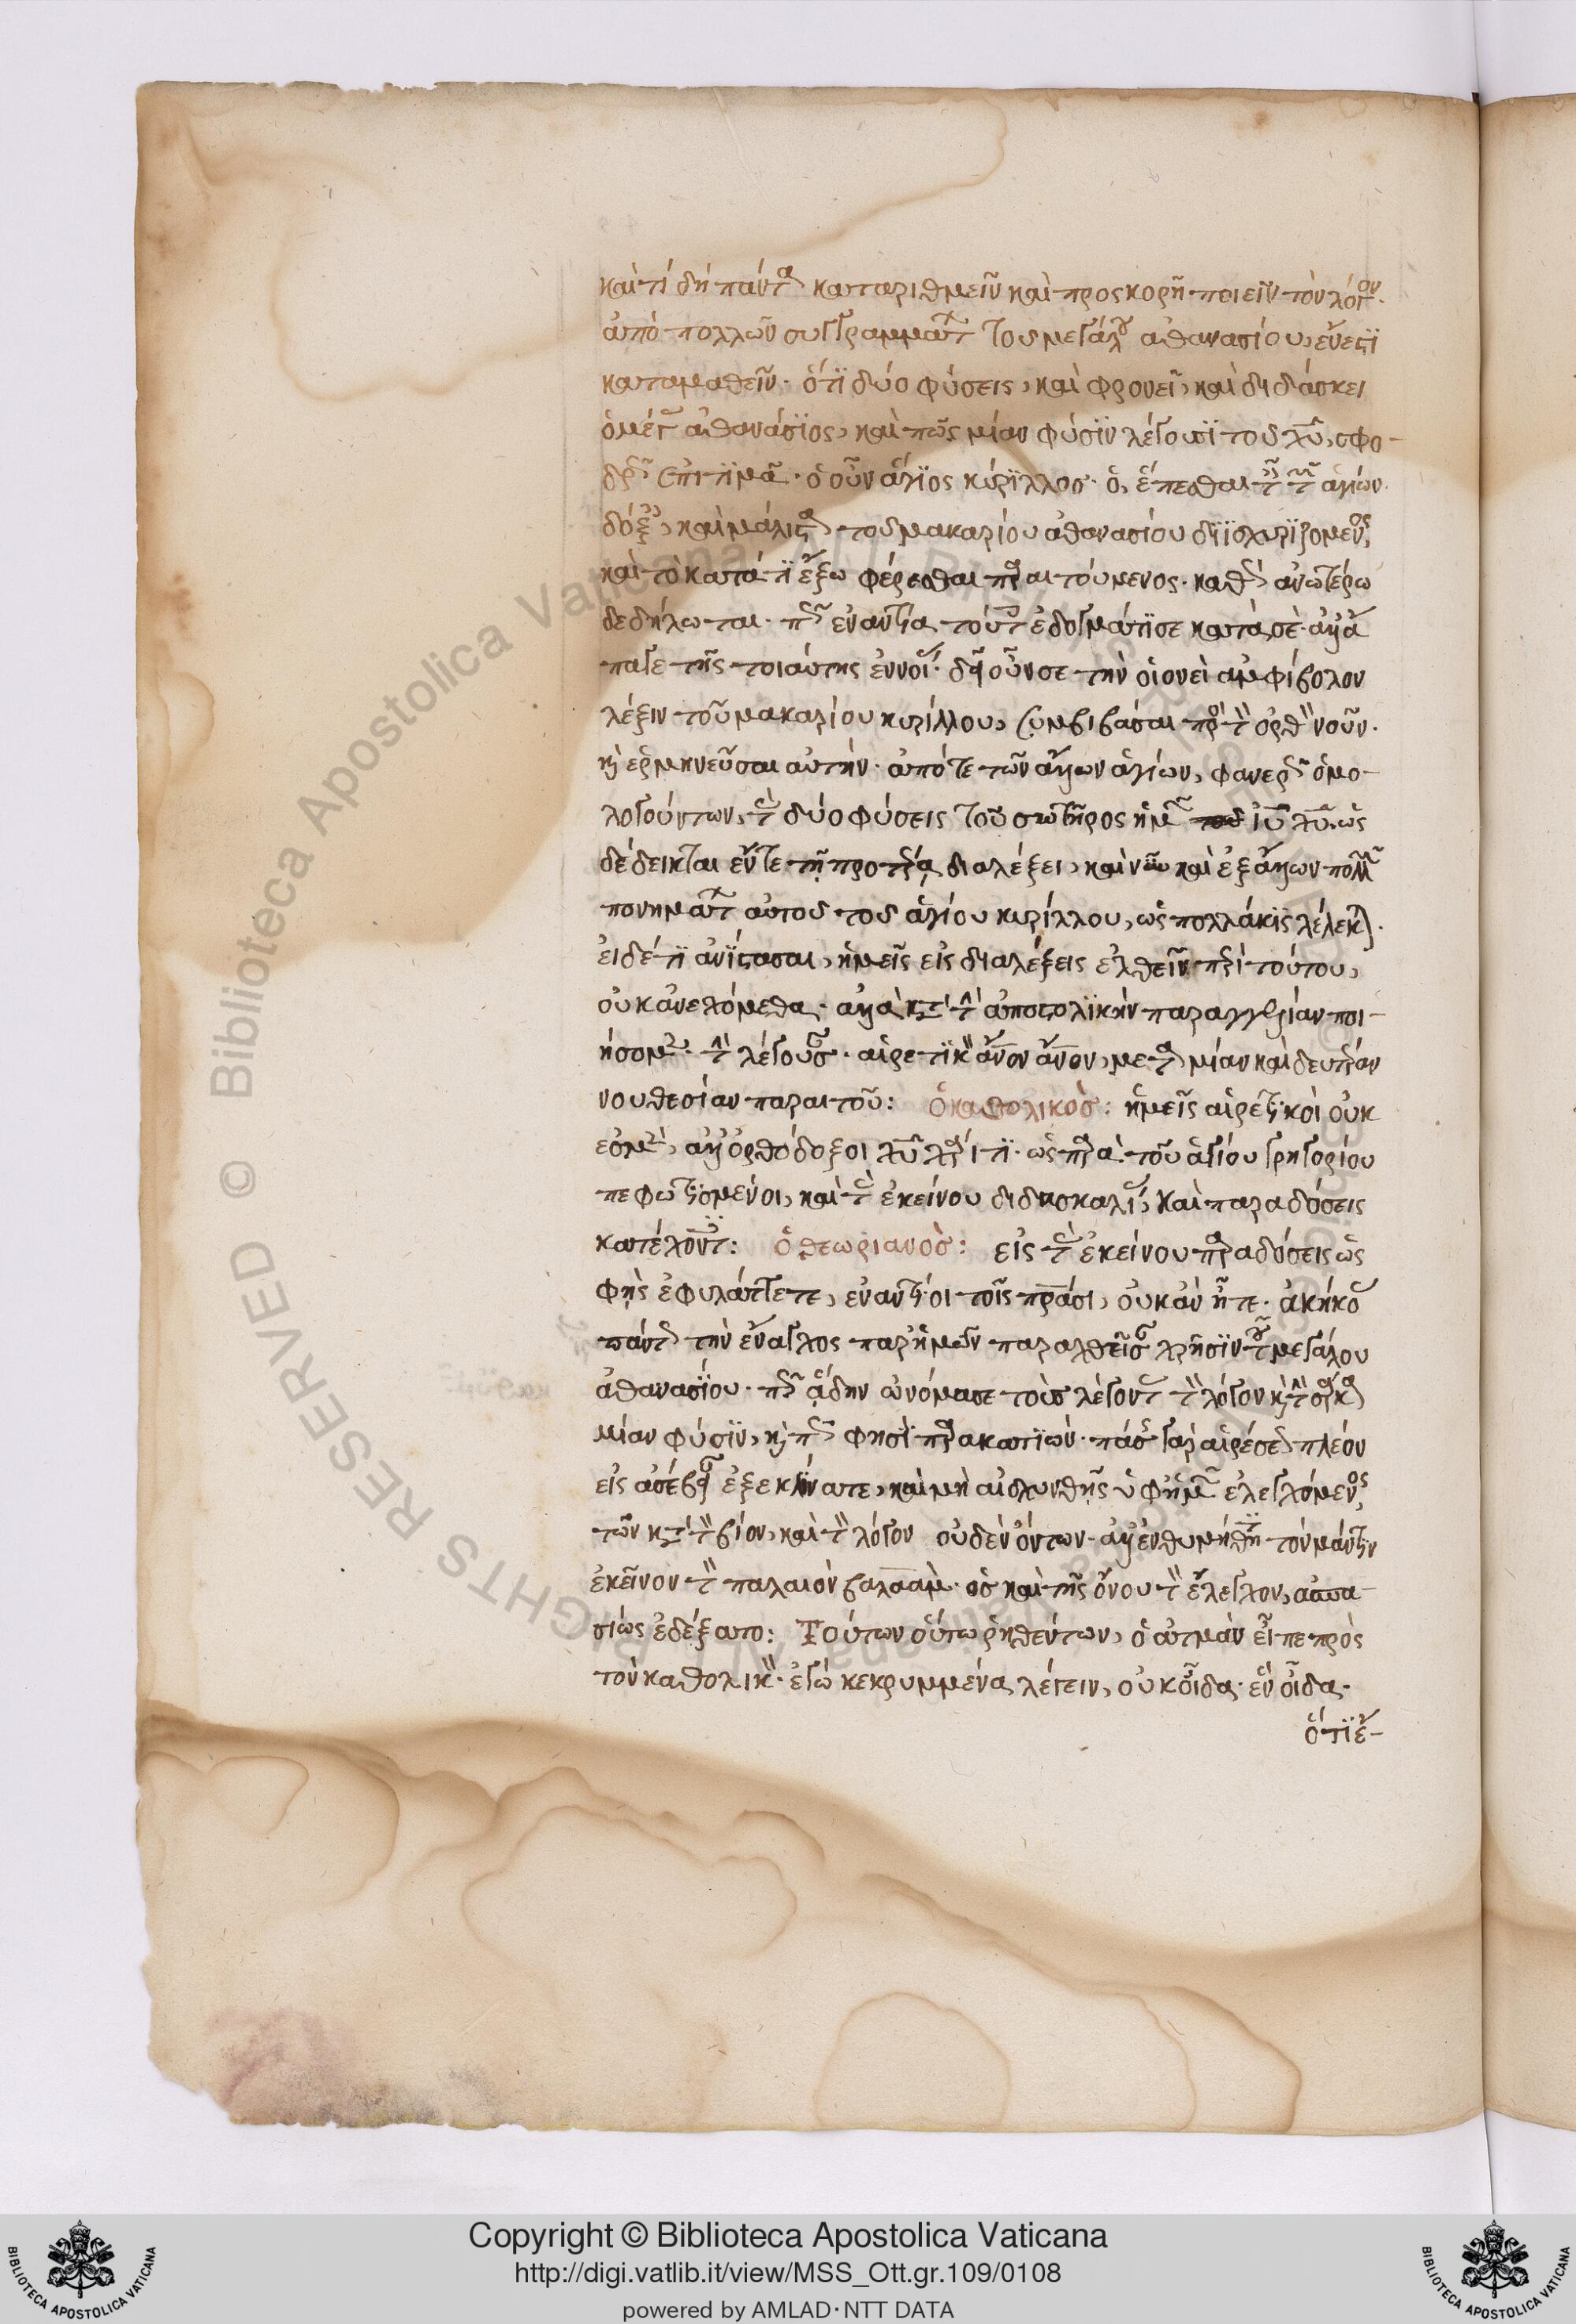 καὶ τί δὴ πάντα καταριθμεῖν καὶ προσκορῆ ποιεῖν τὸν λόγον.
ἀπὸ πολλῶν συγγραμμάτ τοῦ μεγάλου ἀθανασίου, ἔνεστι
καταμαθεῖν. ὅτι δύο φύσεις, καὶ φρονεῖ, καὶ διδάσκει
ὁ μέγ ἀθανάσιος, καὶ πῶς μίαν φύσιν λέγουσι τοῦ χῦ, σφο-
δρῶς ἐπιτιμᾶ. ὁ οὖν ἅγιος κύριλλος. ὁ, ἕπεσθαι τ τ ἁγίων
δόξ, καὶ μάλιστα τοῦ μακαρίου ἀθανασίου διϊσχυριζόμενος,
καὶ τὸ κατά τι ἔξω φέρεσθαι παραιτούμενος. καθὼς ἀνωτέρω
δεδήλωται. πῶς ἐναντία τούτ ἐδογμάτισε κατὰ σέ. ἀλλὰ
παῦε τῆς τοιαύτης ἐννοί. δεῖ οὖν σε τὴν οἱονεὶ ἀμφίβολον
λέξιν τοῦ μακαρίου κυρίλλου, συμβιβάσαι πρὸς τὸν ὀρθὸν νοῦν.
κ ἑρμηνεῦσαι αὐτήν. ἀπό τε τῶν ἄλλων ἁγίων, φανερῶς ὁμο-
λογούντων, τὰς δύο φύσεις τοῦ σωτῆρος ἡμῶν ἰῦ χῦ. ὡς
δέδεικται ἔν τε τῇ προτέρᾳ διαλέξει, καὶ νῦν καὶ ἐξ ἄλλων πολλῶν
πονημάτ αὐτοῦ τοῦ ἁγίου κυρίλλου, ὡς πολλάκις λέλεκται.
εἰ δέ τι ἀνίστασαι, ἡμεῖς εἰς διαλέξεις ἐλθεῖν περὶ τούτου,
οὐκ ἀνεχόμεθα. ἀλλὰ κατὰ τὴν ἀποστολικὴν παραγγελίαν ποι-
ήσομεν. τὴν λέγουσαν. αἱρετικὸν ἄνον ἄνον, μετὰ μίαν καὶ δευτέραν
νουθεσίαν παραιτοῦ: ὁ καθολικὸς: ἡμεῖς αἱρετικοὶ οὐκ
ἐσμὲν, ἀλλ' ὀρθόδοξοι χῦ χάριτι. ὡς παρὰ τοῦ ἁγίου γρηγορίου
πεφωτισμένοι, καὶ τὰς ἐκείνου διδασκαλί, καὶ παραδόσεις
κατέχοντ: ὁ θεωριανὸς: εἰς τὰς ἐκείνου παραδόσεις ὡς
φῂς ἐφυλάττετε, ἐναντίοι τοῖς πράσι, οὐκ ἂν ἦτε. ἀκήκο
πάντως τὴν ἔναγχος παρ' ἡμῶν παραχθεῖσαν χρῆσιν τοῦ μεγάλου
ἀθανασίου. πῶς ᾅδην ὠνόμασε τοὺς λέγοντ τὸν λόγον κ τὴν σάρκα
μίαν φύσιν, κ πῶς φησὶ παρακατιὼν. πάσης γὰρ αἱρέσεως πλέον
εἰς ἀσέβειαν ἐξεκλίνατε, καὶ μὴ αἰσχυνθῇς ὑφ' ἡμῶν ἐλεγχόμενος,
τῶν κατὰ τὸν βίον, καὶ τὸν λόγον οὐδὲν ὄντων. ἀλλ' ἐνθυμήθητι τὸν μάντιν
ἐκεῖνον τὸν παλαιὸν βαλαὰμ. ὃς καὶ τῆς ὄνου τὸν ἔλεγχον, ἀσπα-
σίως ἐδέξατο: Τούτων οὕτω ῥηθέντων, ὁ ἀτμὰν εἶπε πρὸς
τὸν καθολικὸν. ἐγὼ κεκρυμμένα λέγειν, οὐκ οἶδα. ἓν οἶδα.
ὅτι ἐ-
Copyright © Biblioteca Apostolica Vaticana
http://digi.vatlib.it/view/MSS_Ott.gr.109/0108
powered by AMLAD·NTT DATA
BIBLIOTECA APOSTOLICA VATICANA
BIBLIOTECA APOSTOLICA VATICANA